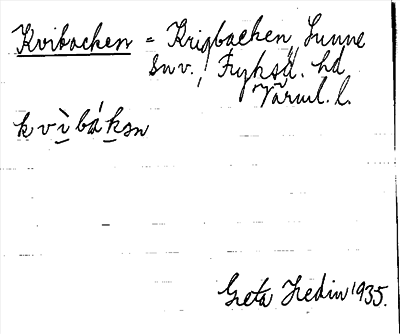 Kvibacken = Krigbacken, Sunne
Snv., Fryksd. hd
Värml. l.
kvìbáksn
Greta Hedin 1935.